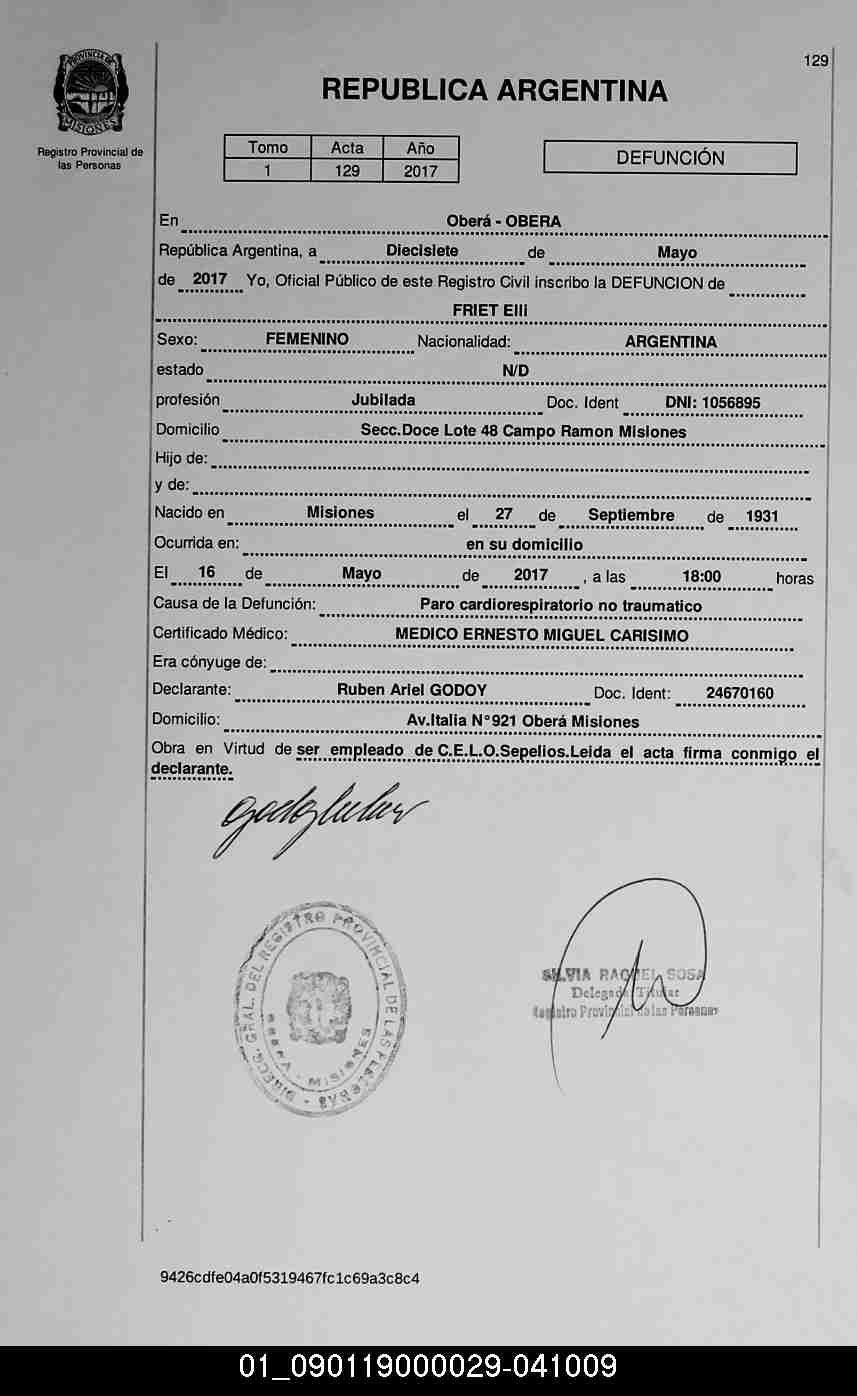 129
PROVINCIA DE
MISIONES
REPUBLICA ARGENTINA
Registro Provincial de
las Personas
Tomo Acta Año
1 129 2017
DEFUNCIÓN
En Oberá - OBERA
República Argentina, a Diecisiete de Mayo
de 2017 Yo, Oficial Público de este Registro Civil inscribo la DEFUNCION de
FRIET Elli
Sexo: FEMENINO Nacionalidad: ARGENTINA
estado N/D
profesión Jubilada Doc. Ident DNI: 1056895
Domicilio Secc.Doce Lote 48 Campo Ramon Misiones
Hijo de:
y de:
Nacido en Misiones el 27 de Septiembre de 1931
Ocurrida en: en su domicilio
El 16 de Mayo de 2017 , a las 18:00 horas
Causa de la Defunción: Paro cardiorespiratorio no traumatico
Certificado Médico: MEDICO ERNESTO MIGUEL CARISIMO
Era cónyuge de:
Declarante: Ruben Ariel GODOY Doc. Ident: 24670160
Domicilio: Av.Italia N°921 Oberá Misiones
Obra en Virtud de ser empleado de C.E.L.O.Sepelios.Leida el acta firma conmigo el
declarante.
DIRECC. GRAL. DEL REGISTRO PROVINCIAL DE LAS PERSONAS
MISIONES
SILVIA RAQUEL SOSA
Delegada Titular
Registro Provincial de las Personas
9426cdfe04a0f5319467fc1c69a3c8c4
01_090119000029-041009